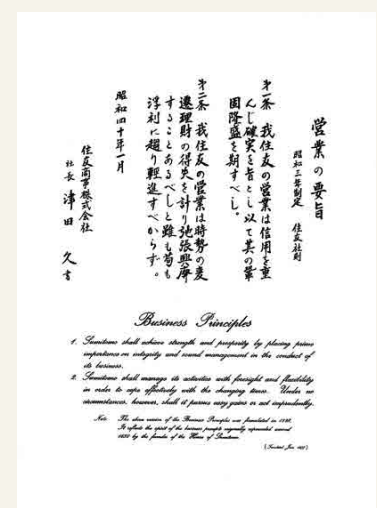 営業の要旨
昭和三年制定 住友社則
第一条 我住友の営業は信用を重
んじ確実を旨とし以て其の鞏
固隆盛を期すべし。
第二条 我住友の営業は時勢の変
遷理財の得失を計り弛張興廃
することあるべしと雖も苟も
浮利に趨り軽進すべからず。
昭和四十年一月
住友商事株式会社
社長 津田 久 書
Business Principles
1. Sumitomo shall achieve strength and prosperity by placing prime
importance on integrity and sound management in the conduct of
its business.
2. Sumitomo shall manage its activities with foresight and flexibility
in order to cope effectively with the changing times. Under no
circumstances, however, shall it pursue easy gains or act imprudently.
Note: The above version of the Business Principles was formulated in
It reflects the spirit of the business precepts originally expounded around
1650 by the founder of the House of Sumitomo.